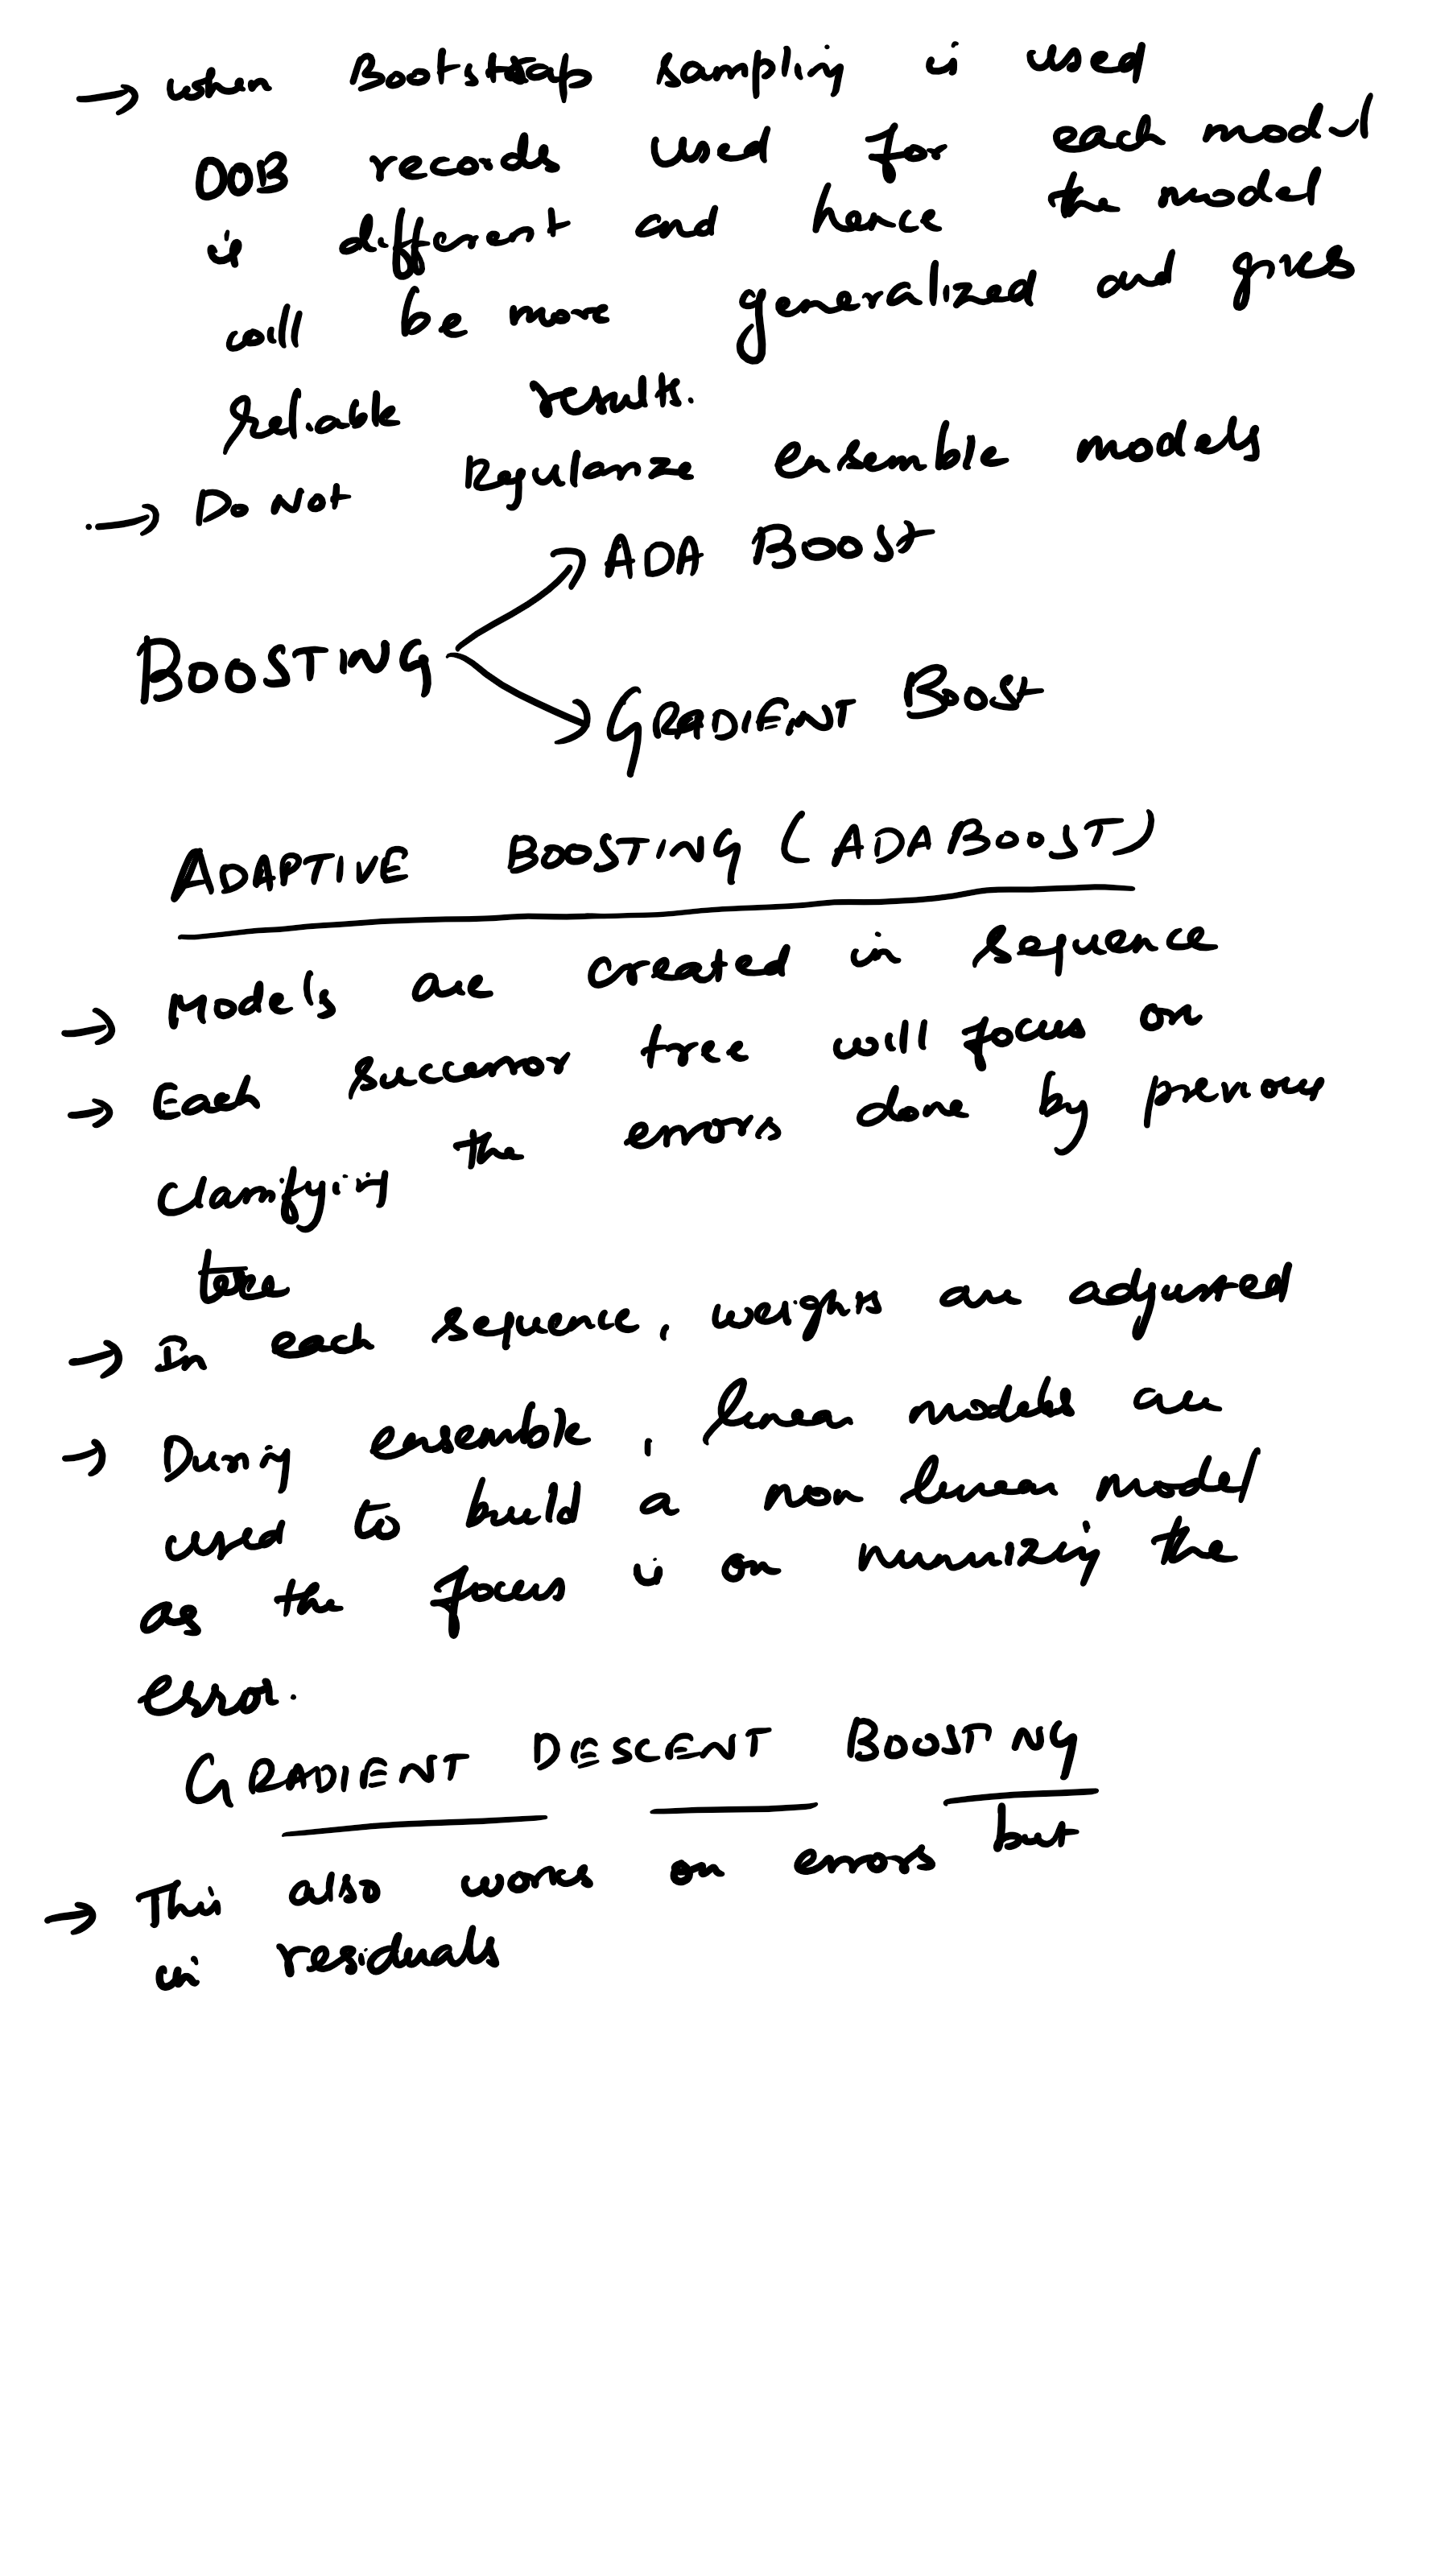 → when Bootstrap sampling is used
OOB records used for each model
is different and hence the model
will be more generalized and gives
reliable results.
→ Do Not Regularize ensemble models
ADA BOOST
BOOSTING
GRADIENT BOOST
ADAPTIVE BOOSTING (ADABOOST)
→ Models are created in sequence
→ Each successor tree will focus on
classifying the errors done by previous
tree
→ In each sequence, weights are adjusted
→ During ensemble, linear models are
used to build a non linear model
as the focus is on minimizing the
error.
GRADIENT DESCENT BOOSTING
→ This also works on errors but
in residuals